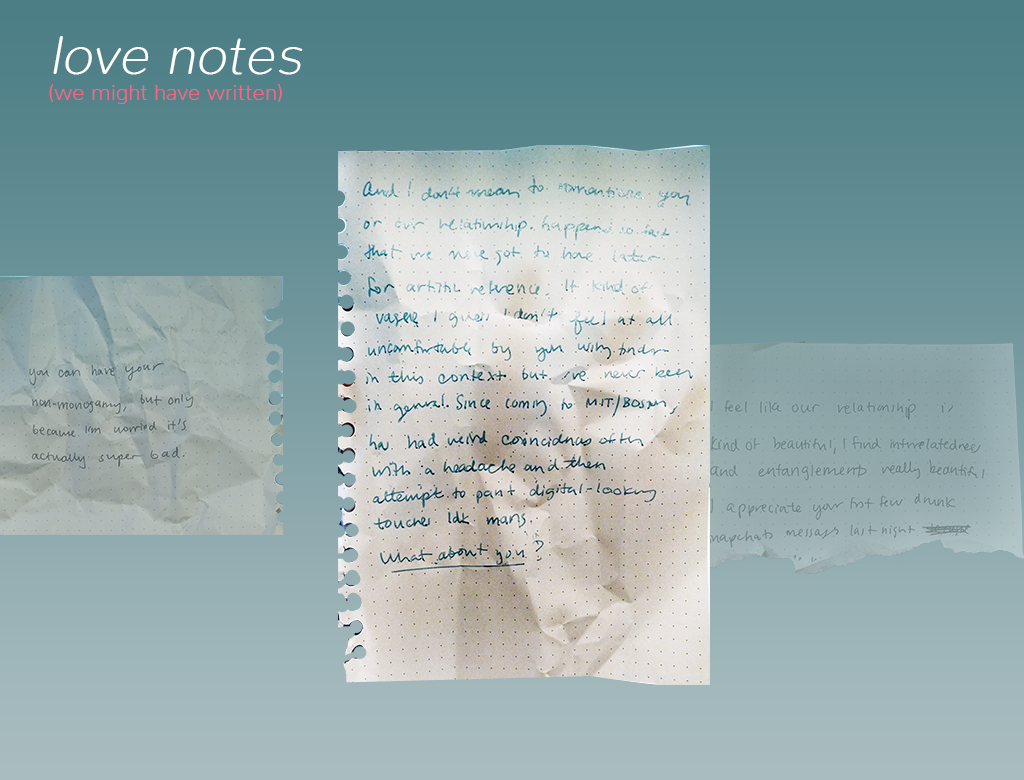 love notes
(we might have written)
you can have your
non-monogamy, but only
because I'm worried it's
actually super bad.
And I don't mean to romanticize you
or our relationship. happened so fast
that we never got to have later
for artistic reference. It kind of
vague I guess I don't feel at all
uncomfortable by you
in this context but I've never been
in general. Since coming to MIT/BOSTON,
had weird coincidences often
with a headache and then
attempt to paint digital-looking
touches Idk
What about you?
I feel like our relationship is
kind of beautiful, I find interrelatedness
and entanglements really beautiful
I appreciate your first few drunk
snapchats messages last night